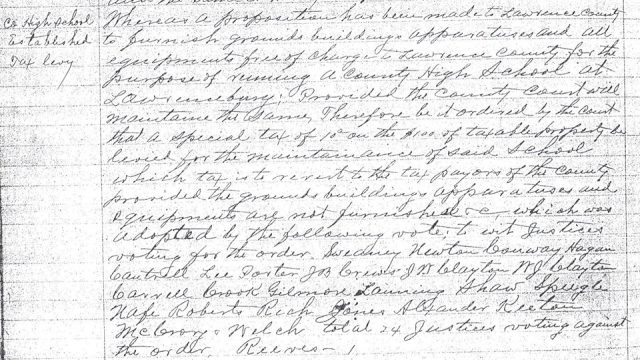 Co High School
Established
Tax levy
Whereas a proposition has been made to Lawrence County
to furnish grounds buildings apparatuses and all
equipments free of charge to Lawrence County for the
purpose of running a County High School at
Lawrenceburg; Provided the County Court will
maintaine the same, Therefore be it ordered by the court
that a special tax of 10¢ on the $100 of taxable property be
levied for the maintainance of said School
which tax is to revert to the tax payors of the County
provided the grounds buildings apparatuses and
equipments are not furnished &c, which was
adopted by the following vote: to wit Justices
voting for the order. Sweaney Newton Conway Hagan
Cantrell Lee Porter J B Crews J W Clayton W J Clayton
Carrell Crook Gilmore Lanning Shaw Speegle
Hafe Roberts Rich Jones Alexander Keeton
McCrory & Welch total 24 Justices voting against
the order. Reeves - 1